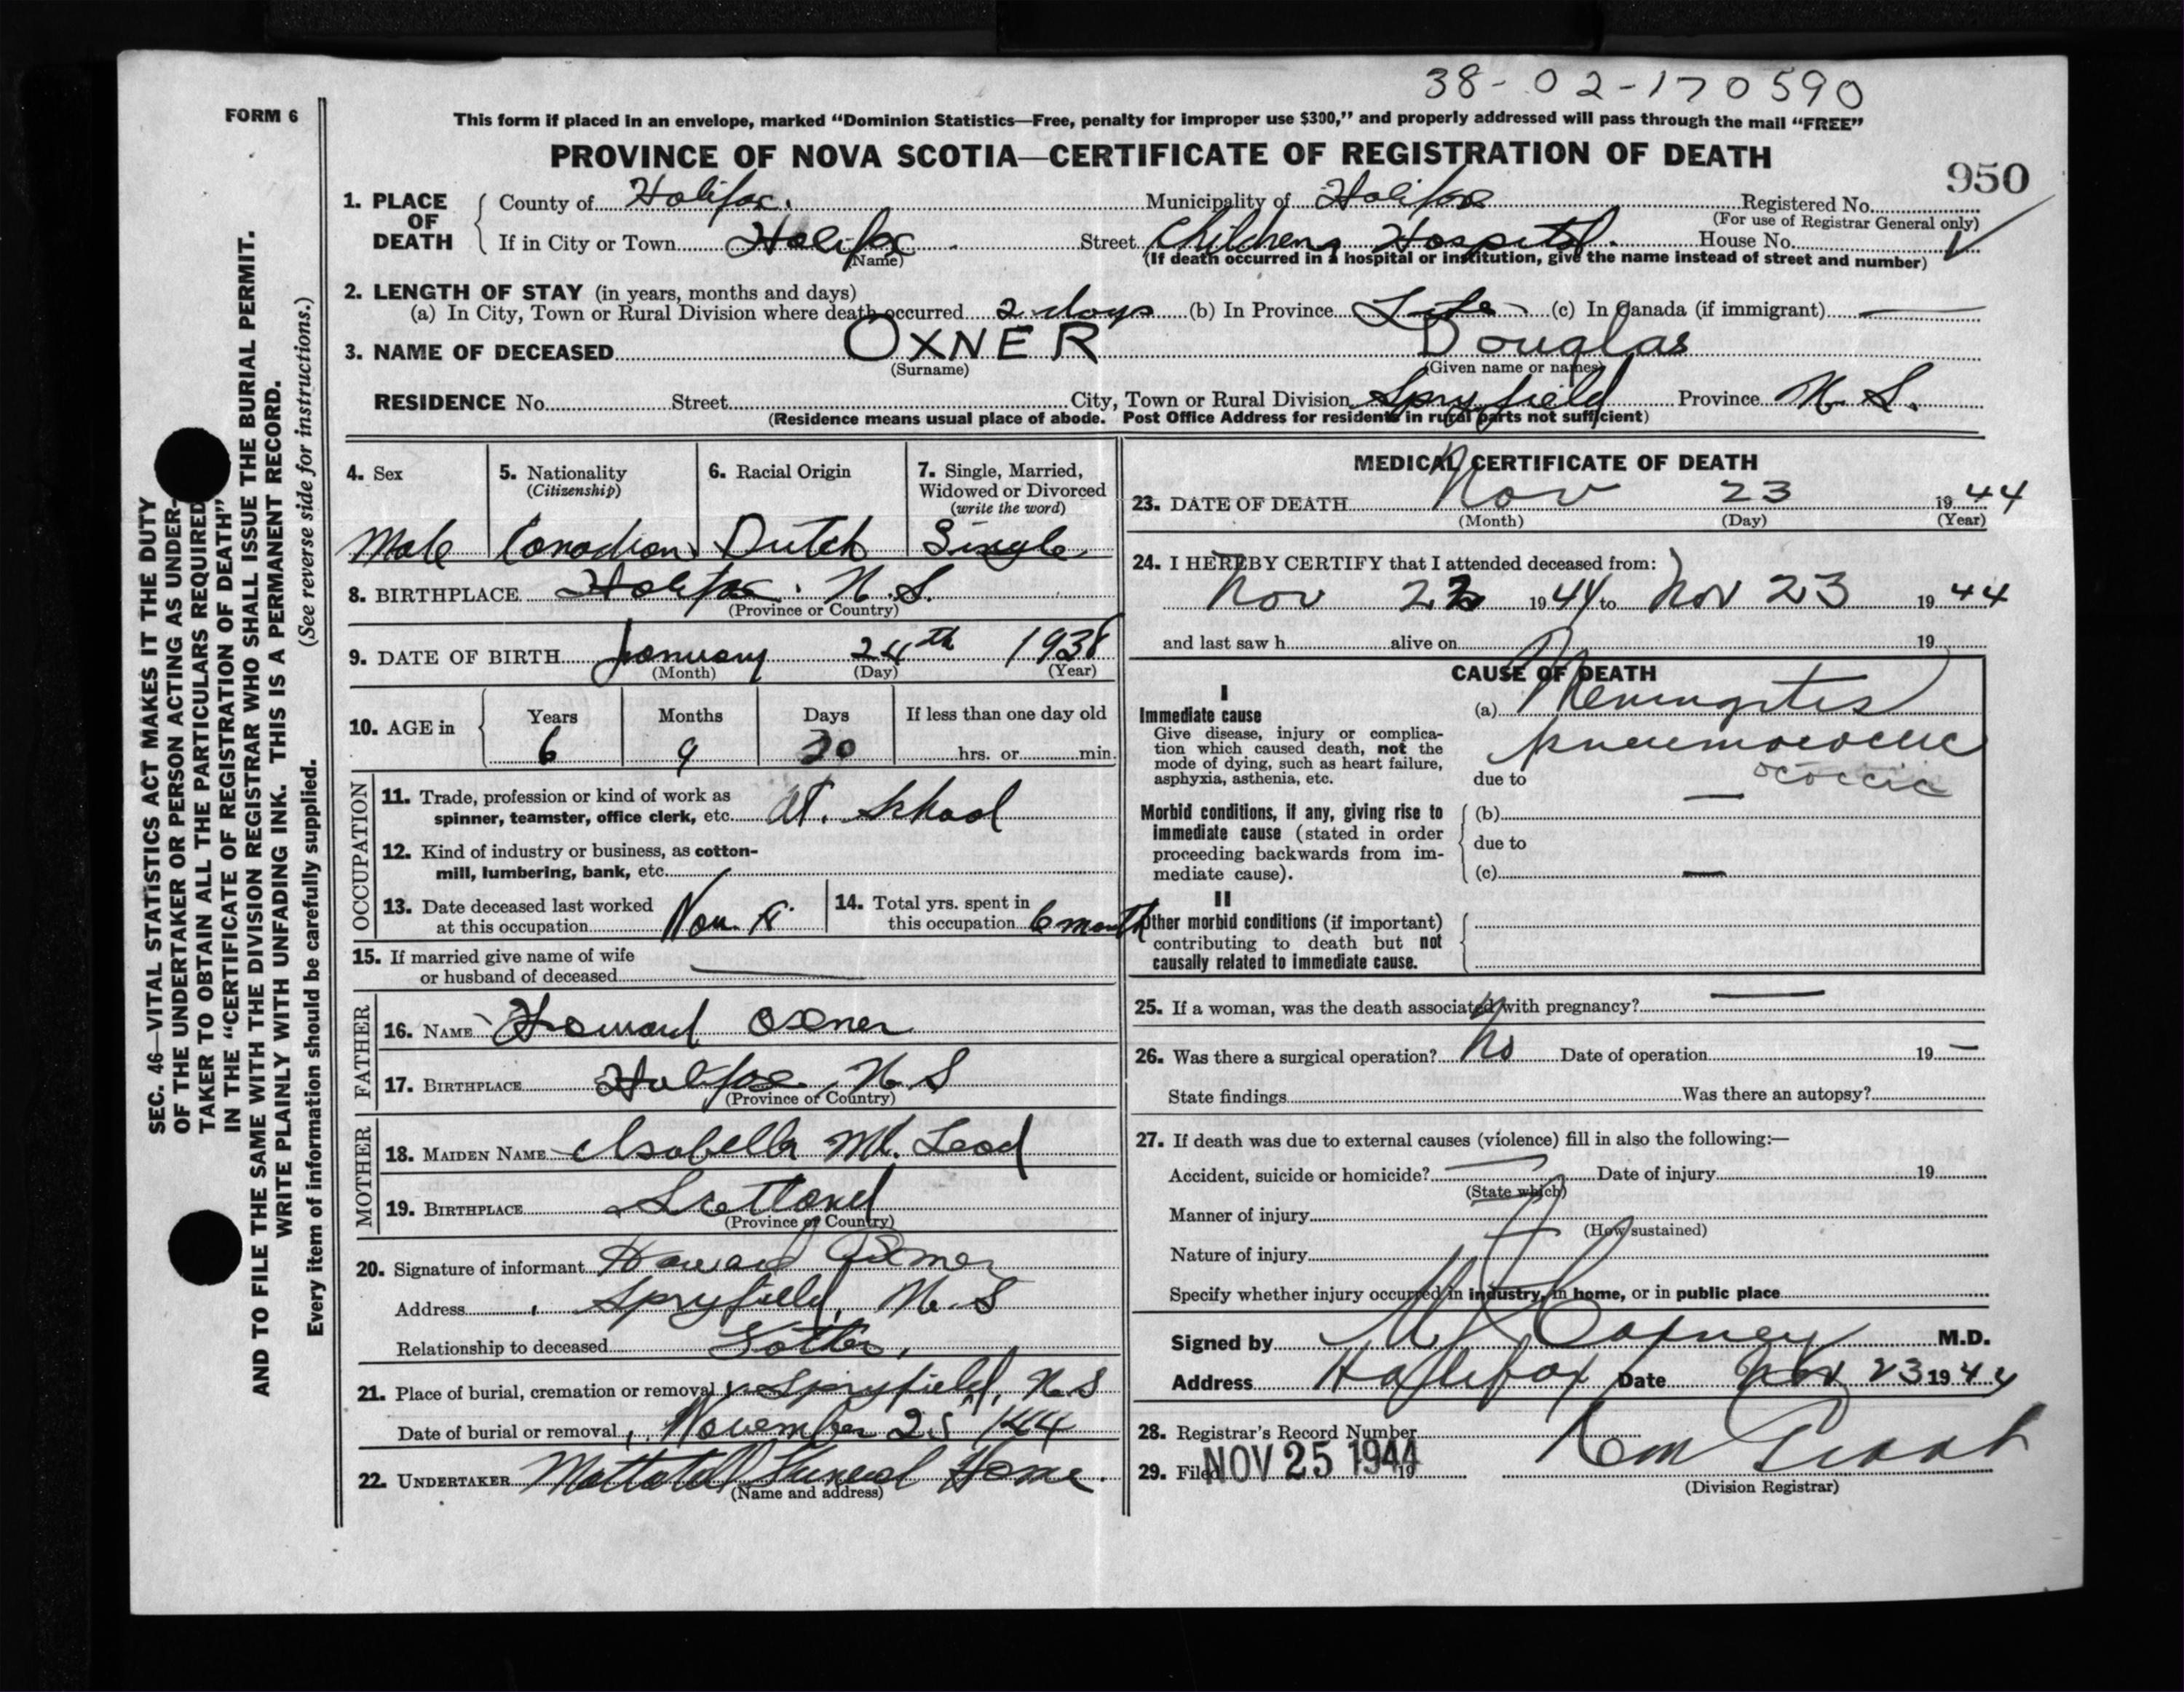 38-02-170590
FORM 6
This form if placed in an envelope, marked "Dominion Statistics—Free, penalty for improper use $300," and properly addressed will pass through the mail "FREE"
PROVINCE OF NOVA SCOTIA—CERTIFICATE OF REGISTRATION OF DEATH
950
1. PLACE OF DEATH
County of Halifax. Municipality of Halifax Registered No.
(For use of Registrar General only)
If in City or Town Halifax Street Childrens Hospital. House No.
(Name) (If death occurred in a hospital or institution, give the name instead of street and number)
2. LENGTH OF STAY (in years, months and days)
(a) In City, Town or Rural Division where death occurred 2 days (b) In Province Life (c) In Canada (if immigrant) —
3. NAME OF DECEASED OXNER Douglas
(Surname) (Given name or names)
RESIDENCE No. Street City, Town or Rural Division Spryfield Province N. S.
(Residence means usual place of abode. Post Office Address for residents in rural parts not sufficient)
4. Sex
Male
5. Nationality
(Citizenship)
Canadian
6. Racial Origin
Dutch
7. Single, Married,
Widowed or Divorced
(write the word)
Single
8. BIRTHPLACE Halifax. N. S.
(Province or Country)
9. DATE OF BIRTH January 24th 1938
(Month) (Day) (Year)
10. AGE in
Years Months Days If less than one day old
6 9 hrs. or min.
OCCUPATION
11. Trade, profession or kind of work as
spinner, teamster, office clerk, etc. At. School
12. Kind of industry or business, as cotton-
mill, lumbering, bank, etc.
13. Date deceased last worked
at this occupation Nov.
14. Total yrs. spent in
this occupation 6 month
15. If married give name of wife
or husband of deceased —
FATHER
16. NAME Howard Oxner
17. BIRTHPLACE Halifax, N. S
(Province or Country)
MOTHER
18. MAIDEN NAME Isabella Mc. Leod
19. BIRTHPLACE Scotland
(Province or Country)
20. Signature of informant Howard Oxner
Address Spryfield, N. S
Relationship to deceased Father,
21. Place of burial, cremation or removal Spryfield, N. S
Date of burial or removal November 25 1944
22. UNDERTAKER Funeral Home.
(Name and address)
MEDICAL CERTIFICATE OF DEATH
23. DATE OF DEATH Nov 23 1944
(Month) (Day) (Year)
24. I HEREBY CERTIFY that I attended deceased from:
Nov 22 1944 to Nov 23 1944
and last saw h alive on 19
CAUSE OF DEATH
I
Immediate cause
Give disease, injury or complica-
tion which caused death, not the
mode of dying, such as heart failure,
asphyxia, asthenia, etc.
(a) Meningitis
pneumococcic
due to ococcic
Morbid conditions, if any, giving rise to
immediate cause (stated in order
proceeding backwards from im-
mediate cause).
(b) —
due to
(c) —
II
Other morbid conditions (if important)
contributing to death but not
causally related to immediate cause.
25. If a woman, was the death associated with pregnancy? —
26. Was there a surgical operation? No Date of operation 19 —
State findings Was there an autopsy?
27. If death was due to external causes (violence) fill in also the following:—
Accident, suicide or homicide? — Date of injury 19
(State which)
Manner of injury
(How sustained)
Nature of injury
Specify whether injury occurred in industry, in home, or in public place
Signed by M.D.
Address Halifax Date Nov 23 1944
28. Registrar's Record Number
29. Filed NOV 25 1944 19
(Division Registrar)
SEC. 46—VITAL STATISTICS ACT MAKES IT THE DUTY
OF THE UNDERTAKER OR PERSON ACTING AS UNDER-
TAKER TO OBTAIN ALL THE PARTICULARS REQUIRED
IN THE "CERTIFICATE OF REGISTRATION OF DEATH"
AND TO FILE THE SAME WITH THE DIVISION REGISTRAR WHO SHALL ISSUE THE BURIAL PERMIT.
WRITE PLAINLY WITH UNFADING INK. THIS IS A PERMANENT RECORD.
Every item of information should be carefully supplied. (See reverse side for instructions.)